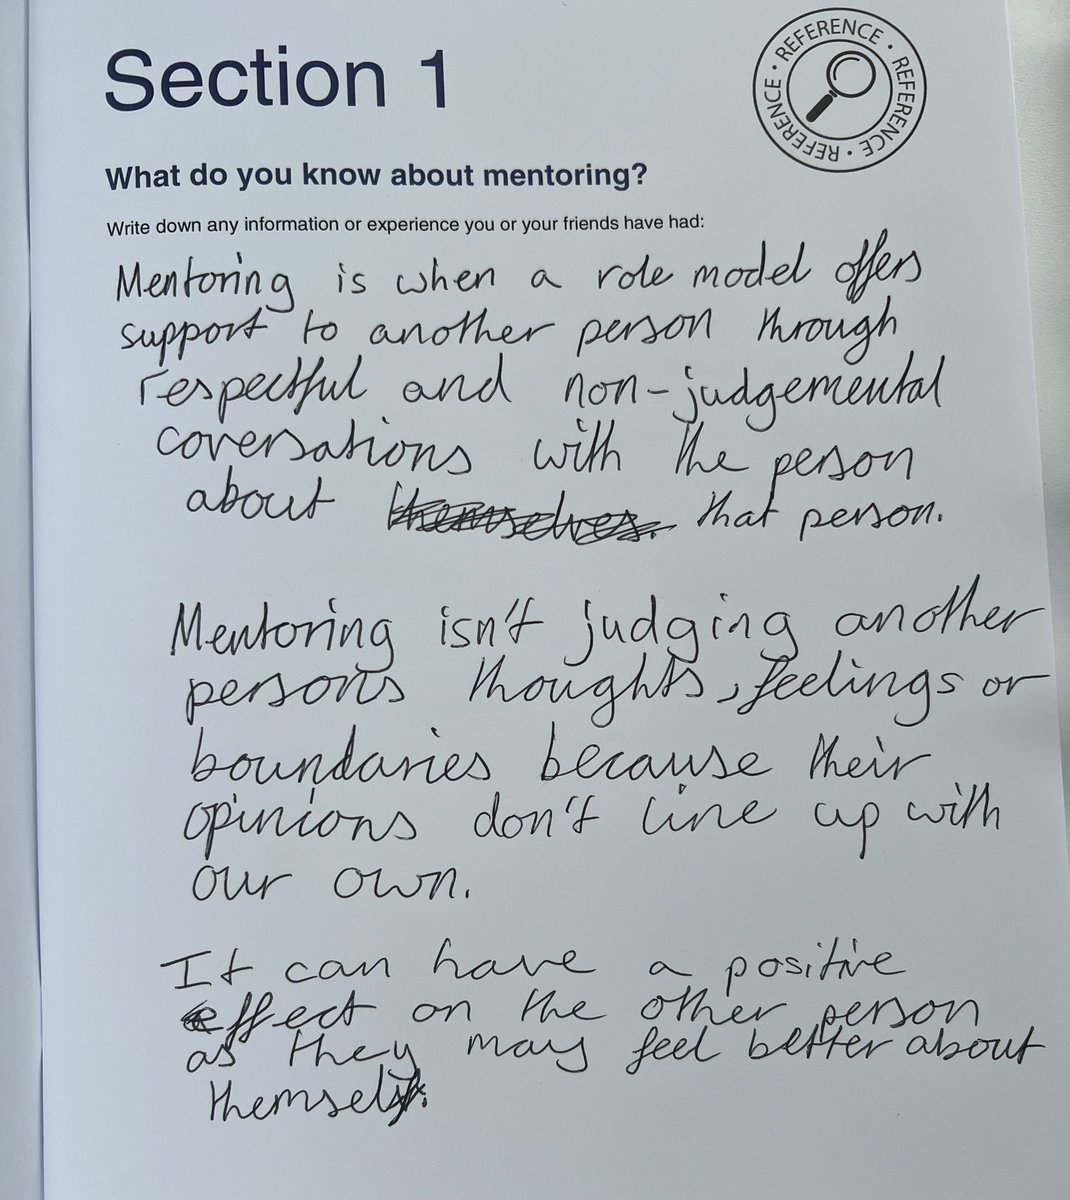 Section 1
REFERENCE · REFERENCE · REFERENCE · REFERENCE ·
What do you know about mentoring?
Write down any information or experience you or your friends have had:
Mentoring is when a role model offers
support to another person through
respectful and non-judgemental
coversations with the person
about themselves. that person.
Mentoring isn't judging another
person's thoughts, feelings or
boundaries because their
opinions don't line up with
our own.
It can have a positive
effect on the other person
as they may feel better about
themself.